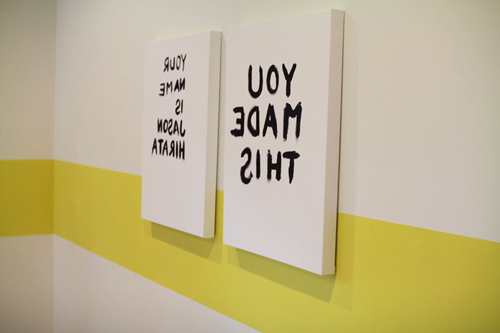 YOUR
NAME
IS
JASON
HIRATA
YOU
MADE
THIS